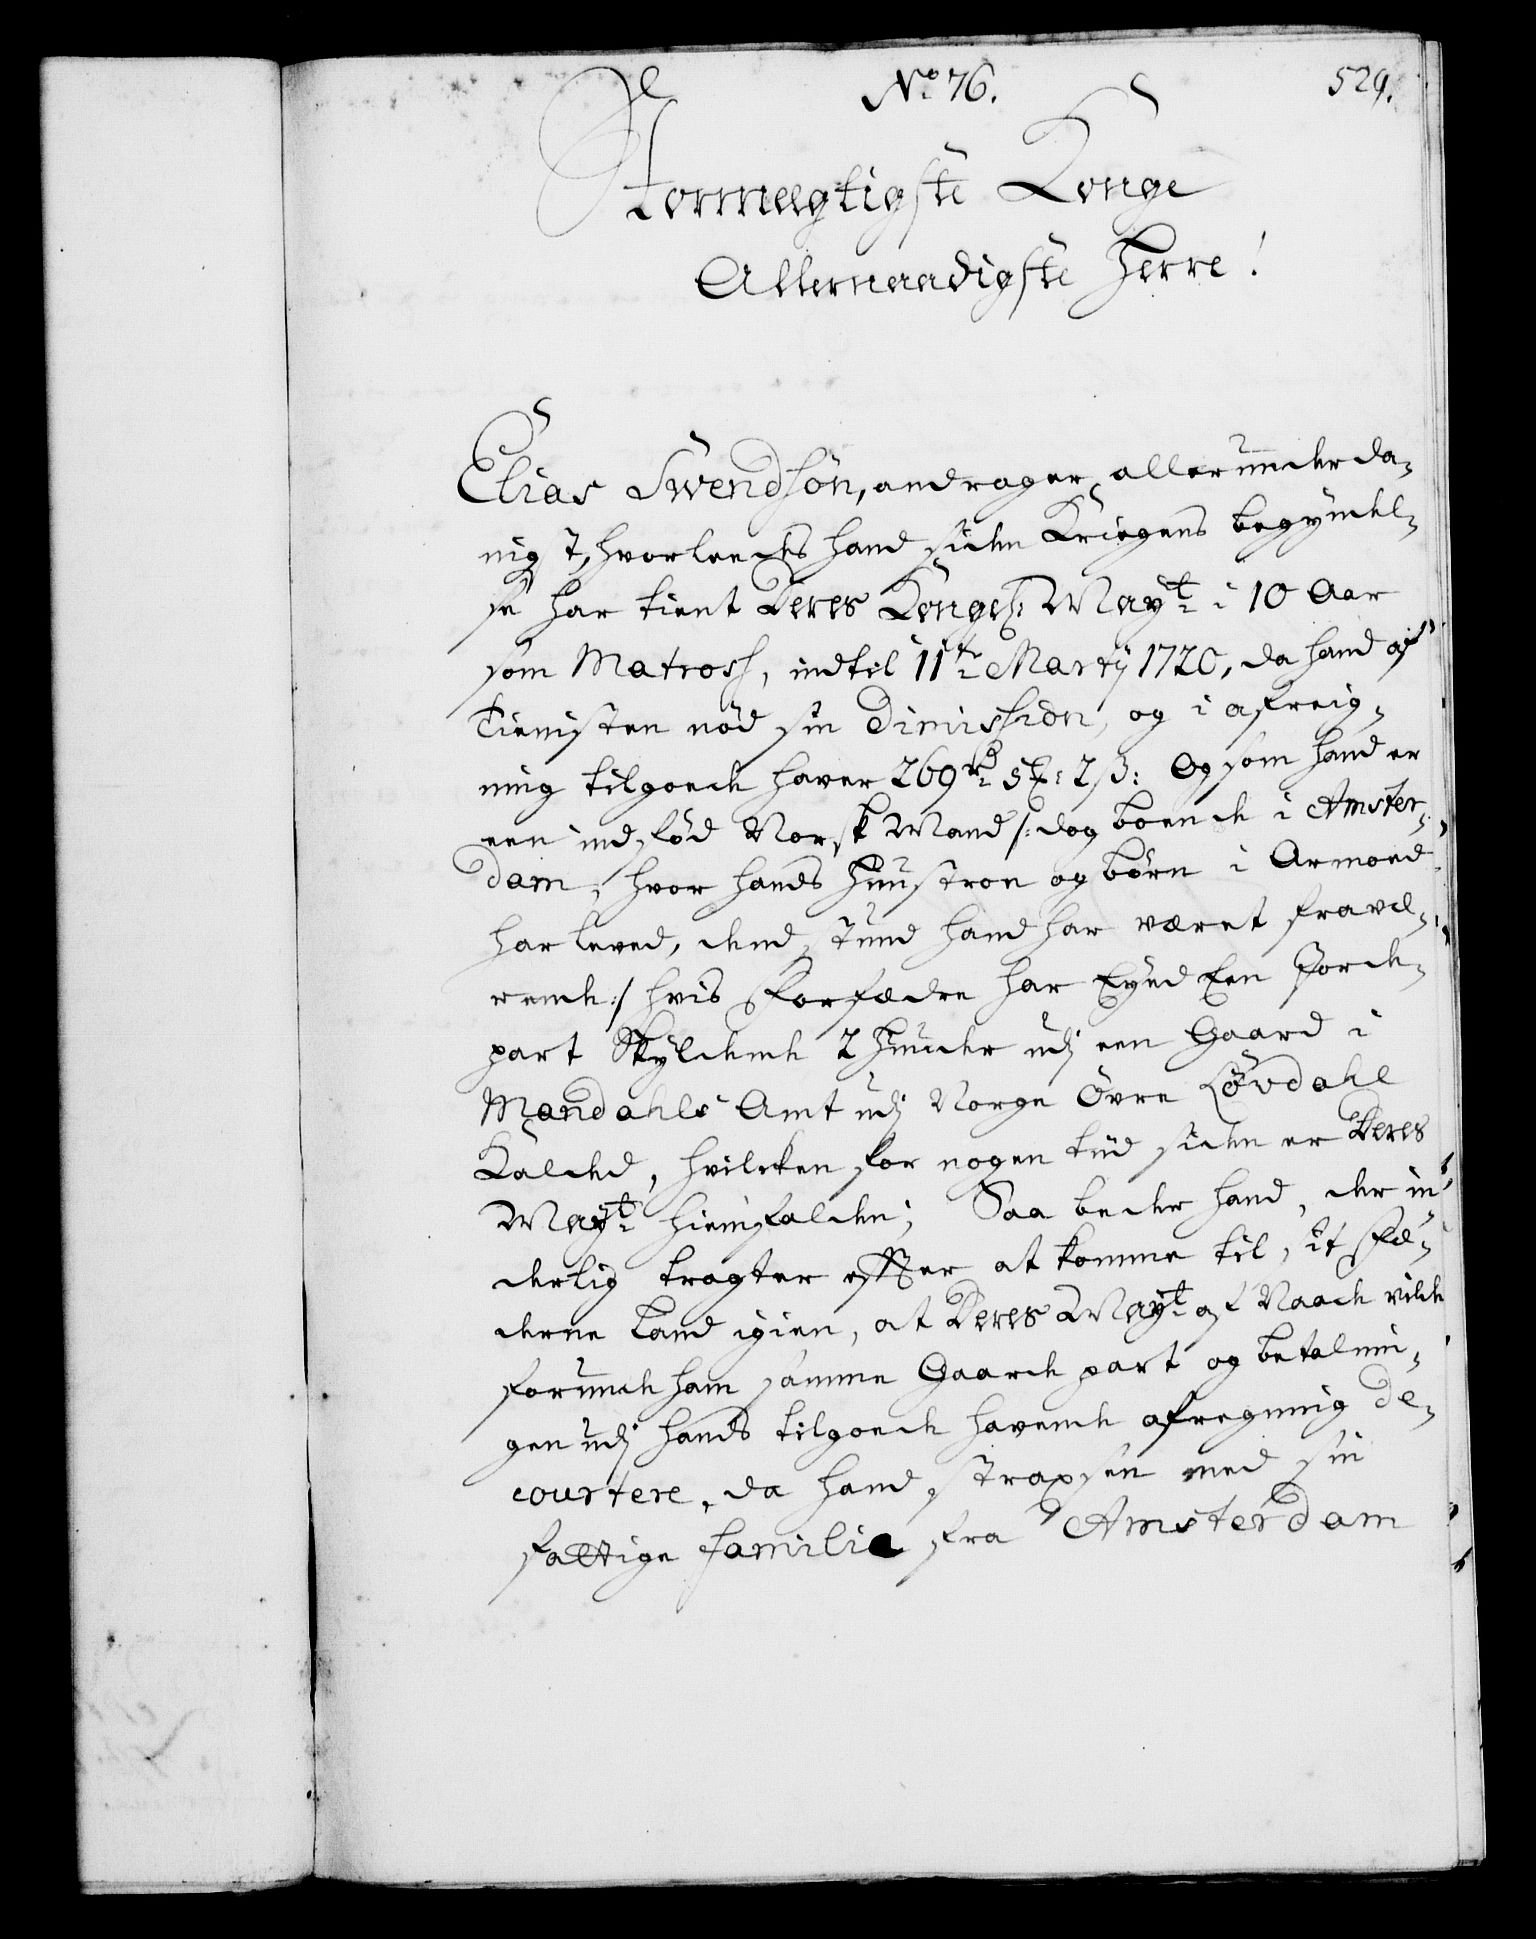 No. 76.
529.
Stormægtigste Konge
Allernaadigste Herre!
Elias Swendsøn, andrager allerunderda-
nigst, hvorleedes hand siden Kriegens begyndel-
se har tient Deres Kongel: Mayt. i 10 Aar
som Matross, indtil 11te Martij 1720, da hand af
Tienisten nød sin Dimission, og i afreig-
ning tilgoede haver 269 rd. 5 2 ß: Og som hand er
een indfød Norsk Mand /: dog boende i Amster-
dam, hvor hands Huustroe og børn i Armoed
har leved, dend stund hand har været fravæ-
rende :/ hvis Forfædre har Eyed Een Jorde-
part Skyldende 2 Huuder udj een Gaard i
Mandahls Amt udj Norge Øvre Løvdahl
Kalded, hvilcken for nogen tiid siden er Deres
Mayt. hiemfalden; Saa beder hand, der in-
derlig tragter effter at komme til, sit Fæ-
derne Land igien, at Deres Mayt. af Naade vilde
forunde ham samme Gaarde part og betalin-
gen udj hands tilgoede havende afregning de-
courtere, da hand straxsen med sin
fattige Familie fra Amsterdam